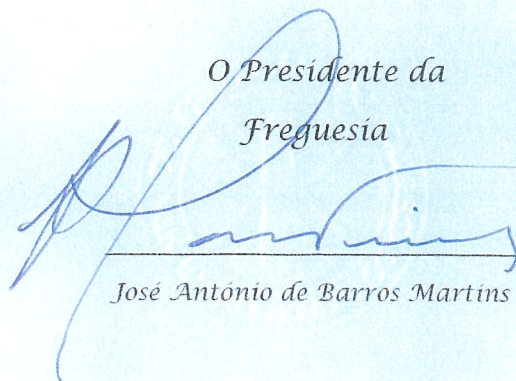 O Presidente da
Freguesia
José António de Barros Martins